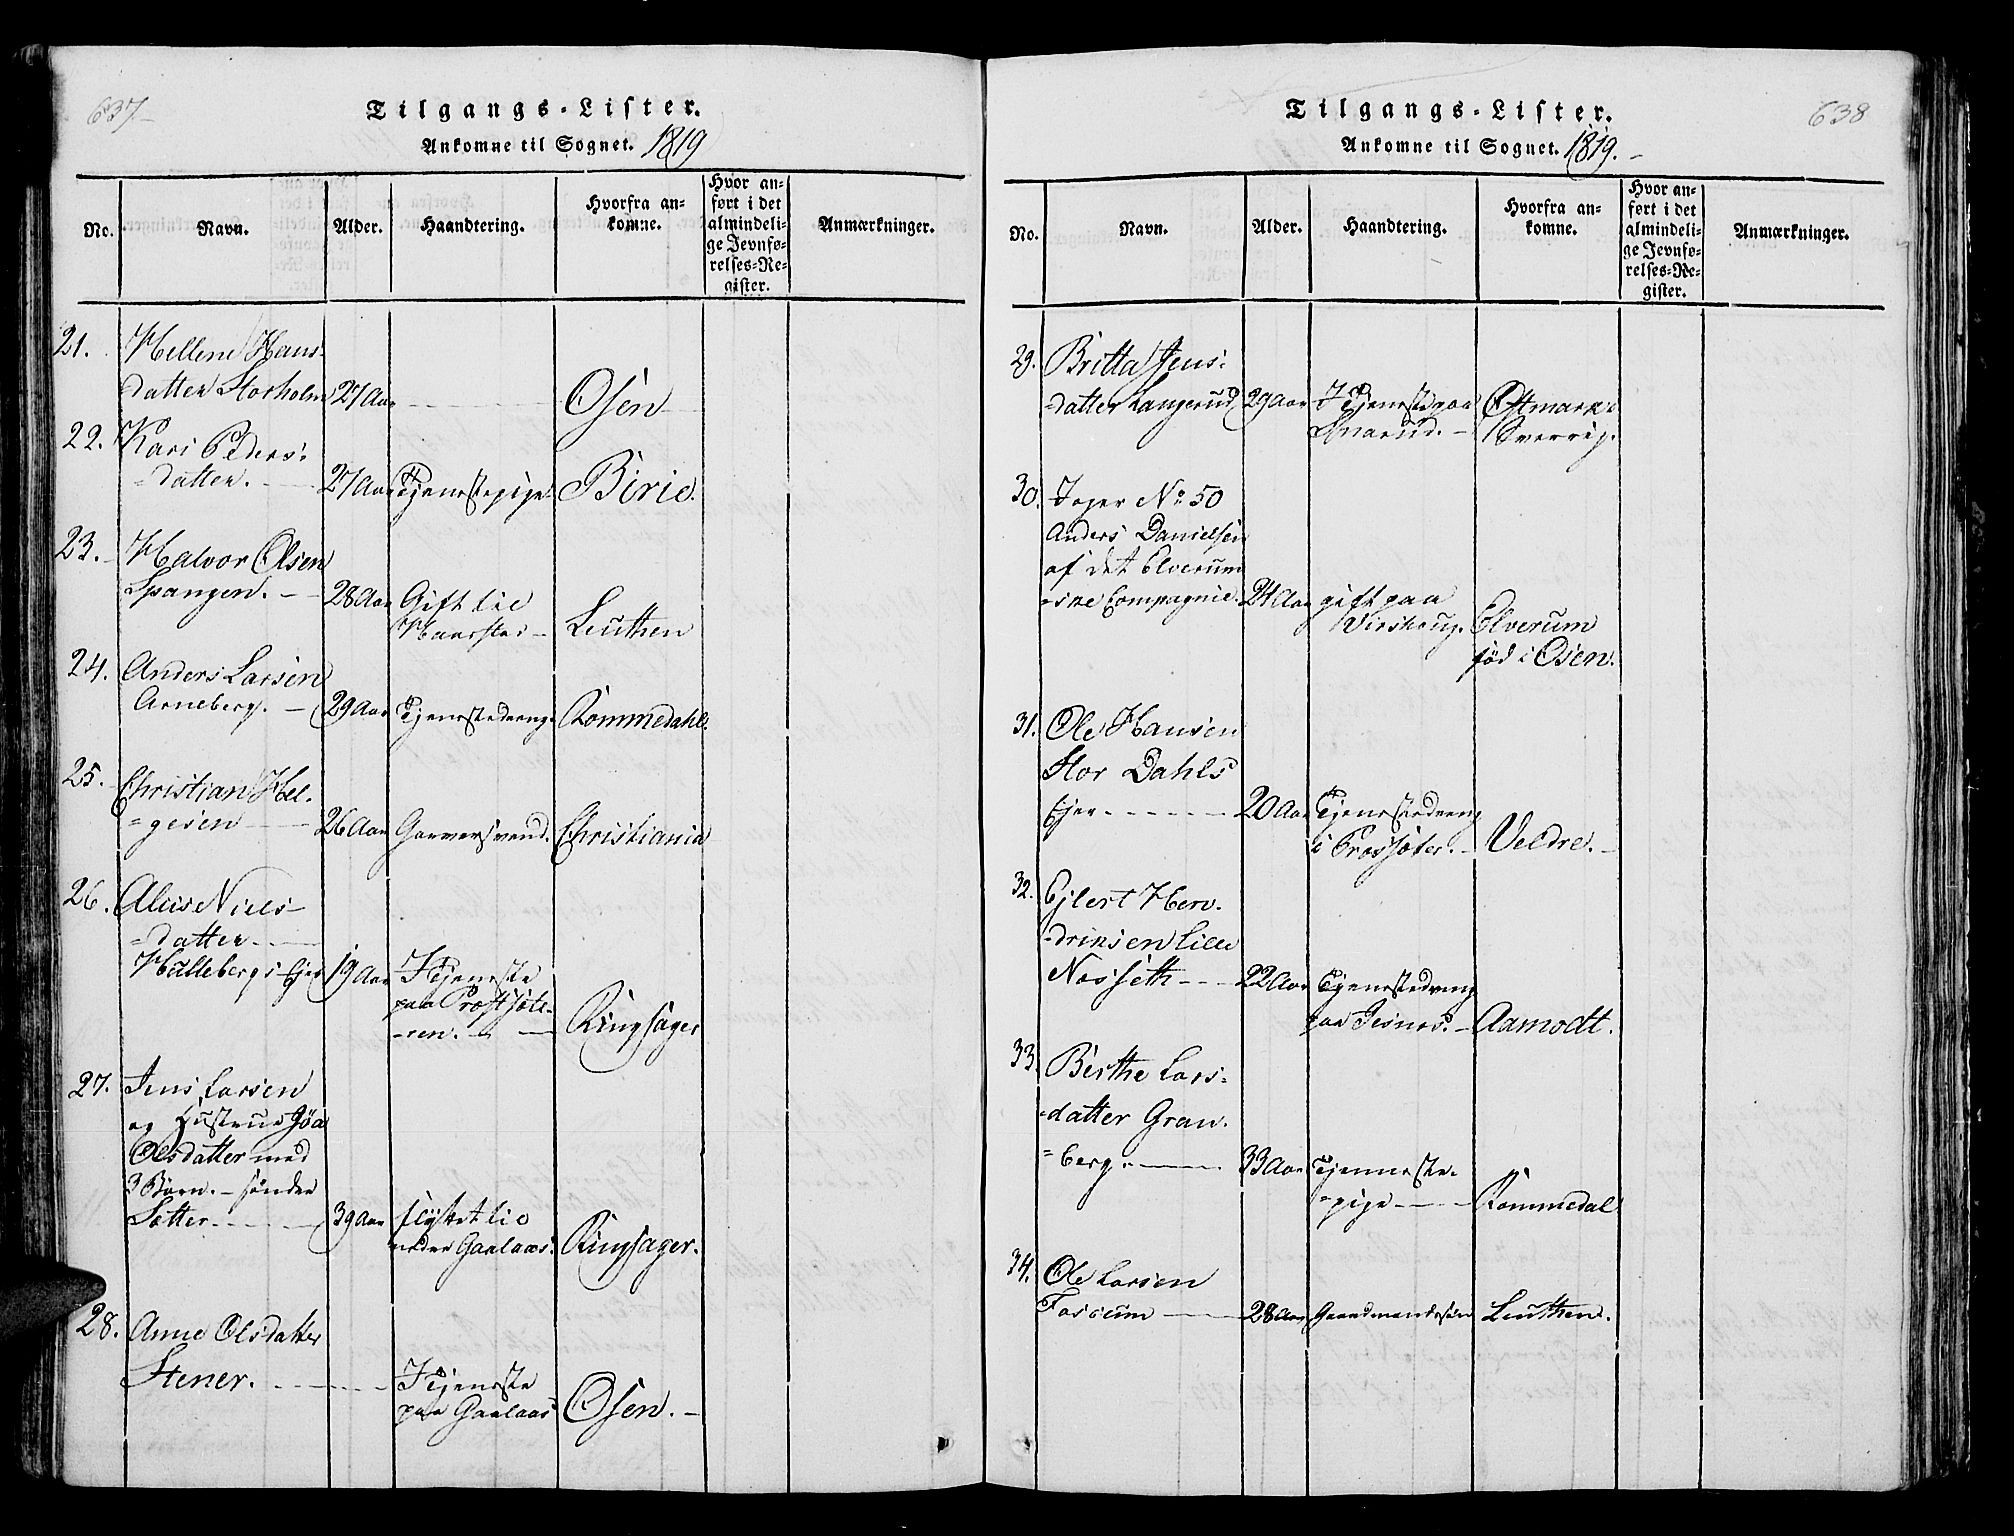 637
Tilgangs-Lister.
Ankomne til Sognet. 1819
No. Navn. Alder. Haandtering. Hvorfra ankomne. Hvor anført i det almindelige Jevnførelses-Register. Anmærkninger.
21. Hellene Hans-
datter Storholm 27 Aar Osen
22. Kari Peders-
=datter. 27 Aar Tjenestepige Birie.
23. Halvor Olsen
Spangen. 28 Aar Gift til
Leuthen
24. Anders Larsen
Arneberg. 29 Aar Tjenestedreng. Rommedahl.
25. Christian Hel-
=gesen 26 Aar Garversvend. Christiania
26. Alis Niels-
=datter
Hulleberg Ejer 19 Aar I Tjeneste
paa Prestsæte-
=ren. Ringsager
27. Jens Larsen
og Hustrue Gøa
Olsdatter med
3 Børn. - søndre
Sætter 39 Aar flyttet til
neder Gaalaas. Ringsager.
28. Anne Olsdatter
Stener. I Tjeneste
paa Gaalaas Osen.
638
Tilgangs-Lister.
Ankomne til Sognet. 1819.
No. Navn. Alder. Haandtering. Hvorfra ankomne. Hvor anført i det almindelige Jevnførelses-Register. Anmærkninger.
29. Britta Jens-
=datter Langerud 29 Aar I Tjeneste paa Østmark i
Snarud. Sverrig.
30. Jeger No 50
Anders Danielsen
af det Elverum
=ske Compagnie. 24 Aar gift paa
Elverum
fød i Osen.
31. Ole Hansen
Stor Dahls
Ejer 20 Aar Tjenestedreng
i Præssæter. Veldre.
32. Ejlert Hen-
=driksen Lille
Nosseth 22 Aar Tjenestedreng
paa Jesnes. Aamodt.
33. Berthe Lars-
=datter Gran-
=berg. 33 Aar Tjeneste-
=pige Rommedal
34. Ole Larsen
Fosseum 28 Aar Gaardmandssøn Leuthen.